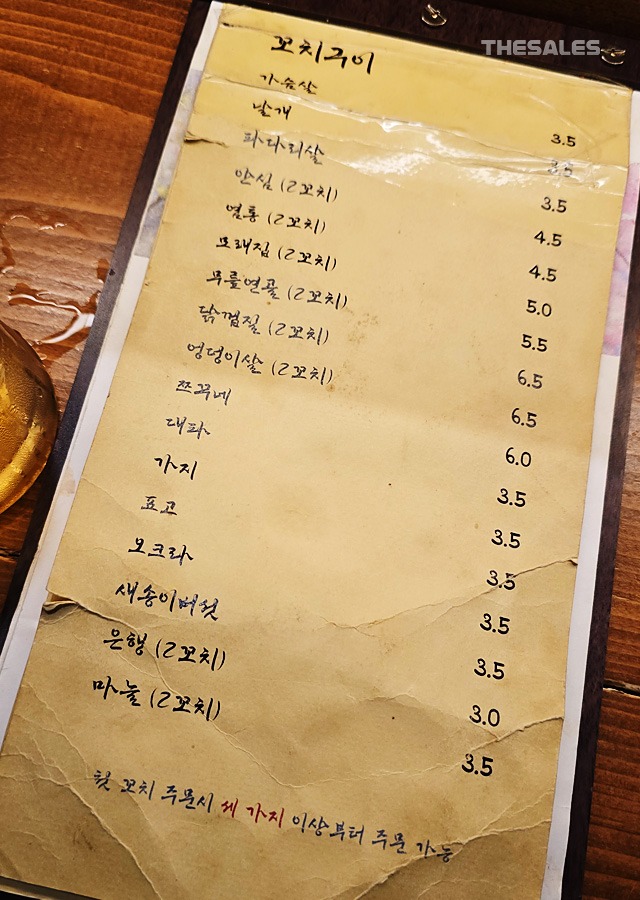 THESALES
꼬치구이
가슴살 3.5
날개 3.5
파다리살 3.5
안심 (2꼬치) 4.5
염통 (2꼬치) 4.5
모래집 (2꼬치) 5.0
무릎연골 (2꼬치) 5.5
닭껍질 (2꼬치) 6.5
엉덩이살 (2꼬치) 6.5
쯔꾸네 6.0
대파 3.5
가지 3.5
표고 3.5
오크라 3.5
새송이버섯 3.5
은행 (2꼬치) 3.0
마늘 (2꼬치) 3.5
첫 꼬치 주문시 세 가지 이상부터 주문 가능